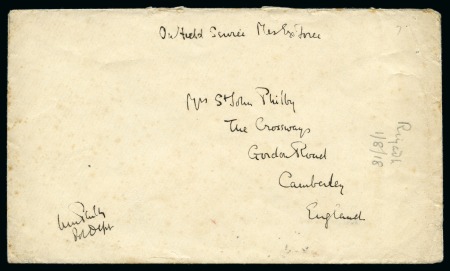 On Field Service Mes Ex Force
Mrs St John Philby
The Crossways
Gordon Road
Camberley
England
Riyadh
1/8/18
Philby
Pol Dept